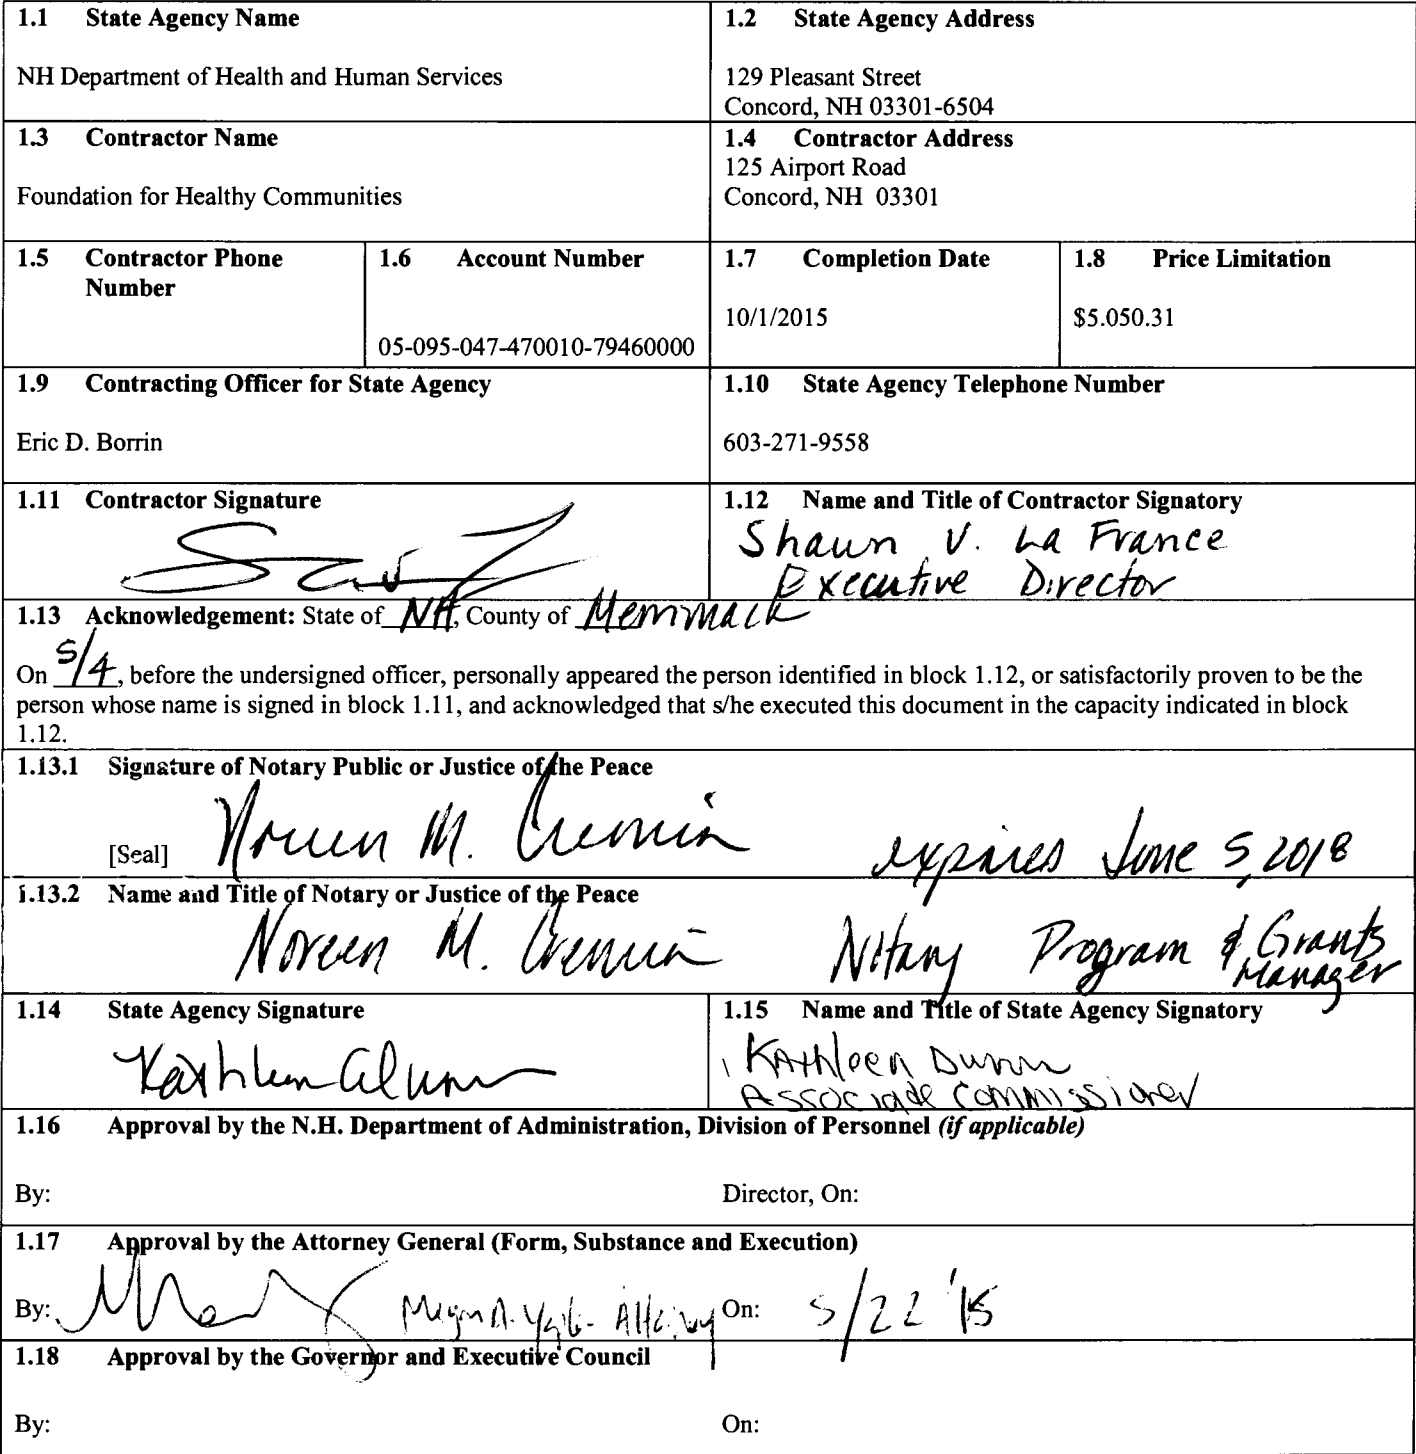 1.1 State Agency Name
NH Department of Health and Human Services
1.2 State Agency Address
129 Pleasant Street
Concord, NH 03301-6504
1.3 Contractor Name
Foundation for Healthy Communities
1.4 Contractor Address
125 Airport Road
Concord, NH 03301
1.5 Contractor Phone
Number
1.6 Account Number
05-095-047-470010-79460000
1.7 Completion Date
10/1/2015
1.8 Price Limitation
$5.050.31
1.9 Contracting Officer for State Agency
Eric D. Borrin
1.10 State Agency Telephone Number
603-271-9558
1.11 Contractor Signature
1.12 Name and Title of Contractor Signatory
Shawn V. La France
Executive Director
1.13 Acknowledgement: State of NH, County of Merrimack
On 5/4, before the undersigned officer, personally appeared the person identified in block 1.12, or satisfactorily proven to be the
person whose name is signed in block 1.11, and acknowledged that s/he executed this document in the capacity indicated in block
1.12.
1.13.1 Signature of Notary Public or Justice of the Peace
[Seal] Noreen M. Cremin expires June 5, 2018
1.13.2 Name and Title of Notary or Justice of the Peace
Noreen M. Cremin Notary Program & Grants
Manager
1.14 State Agency Signature
Kathleen A Dunn
1.15 Name and Title of State Agency Signatory
Kathleen Dunn
Associate Commissioner
1.16 Approval by the N.H. Department of Administration, Division of Personnel (if applicable)
By: Director, On:
1.17 Approval by the Attorney General (Form, Substance and Execution)
By: Megan A. Attorney On: 5/22 '15
1.18 Approval by the Governor and Executive Council
By: On: